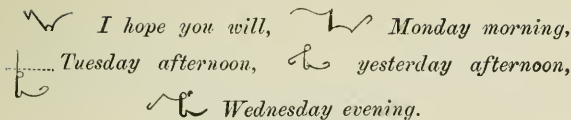 I hope you will, Monday morning,
Tuesday afternoon, yesterday afternoon,
Wednesday evening.